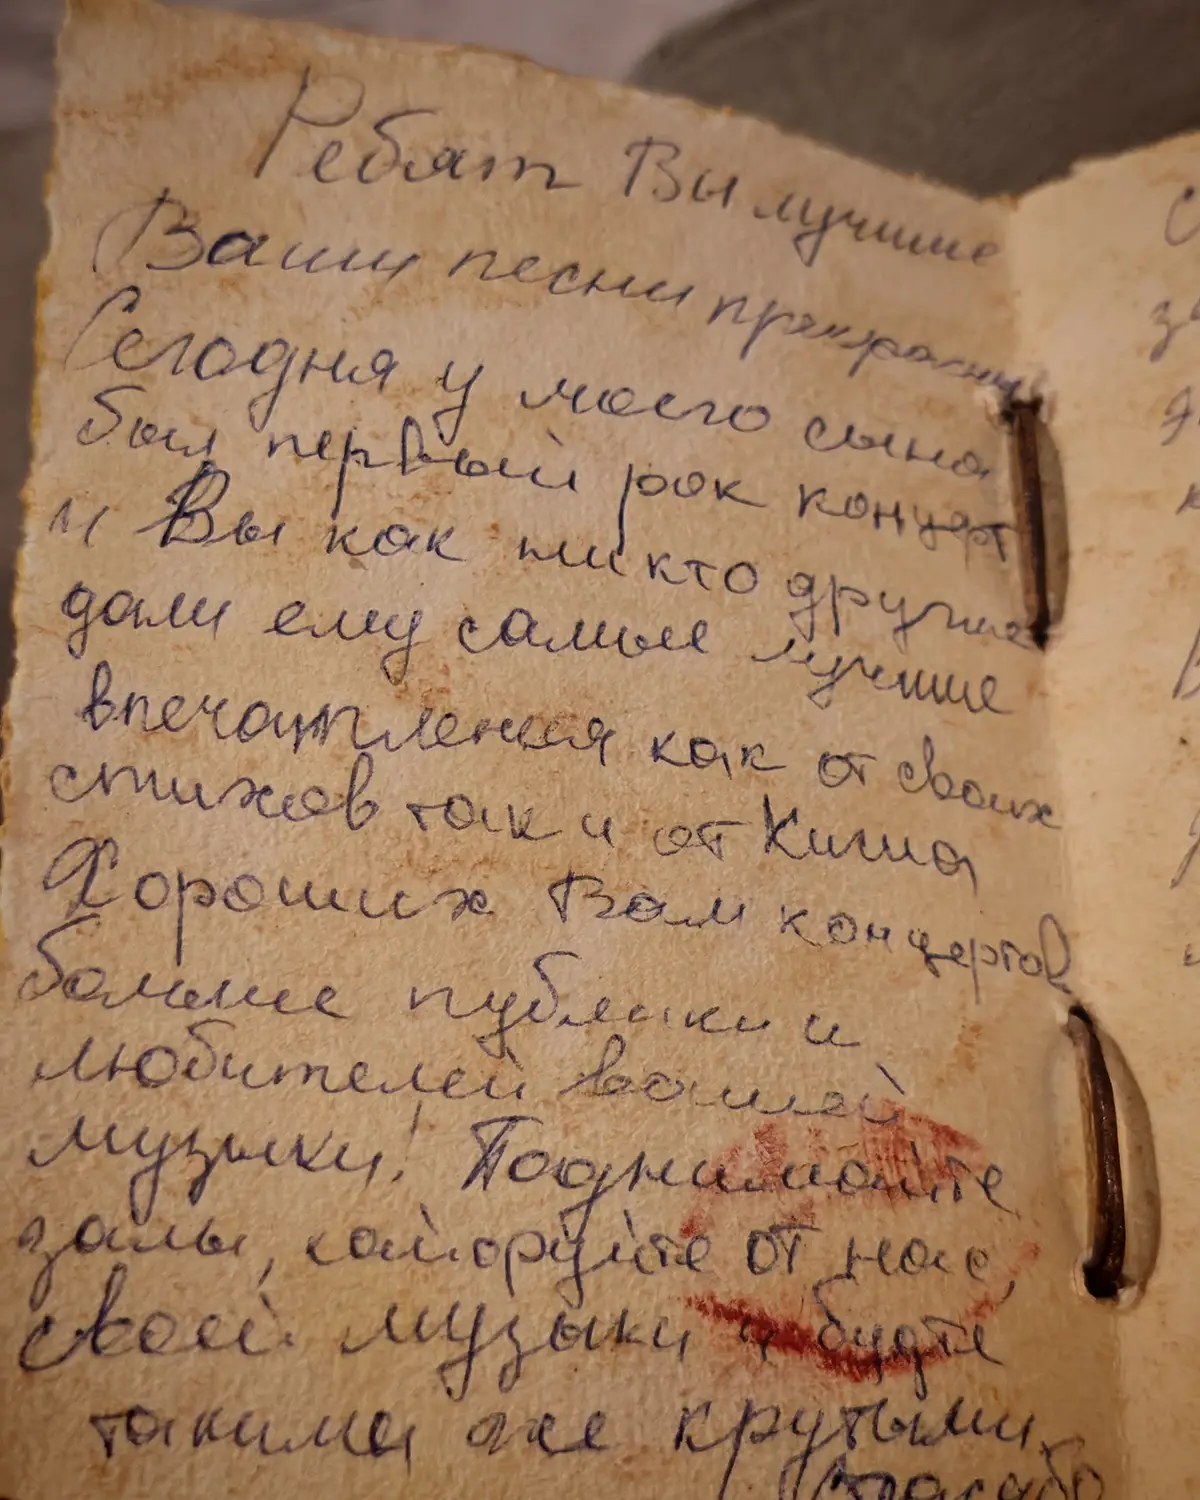 Ребят Вы лучшие
Ваши песни прекрасны
Сегодня у моего сына
был первый рок концерт
и Вы как никто другие
дали ему самые лучшие
впечатления как от своих
стихов так и от
Хороших Вам концертов,
больше публики и
любителей вашей
музыки! Поднимайте
залы, кайфуйте от нас,
своей музыки и будте
такими же крутыми
Спасибо